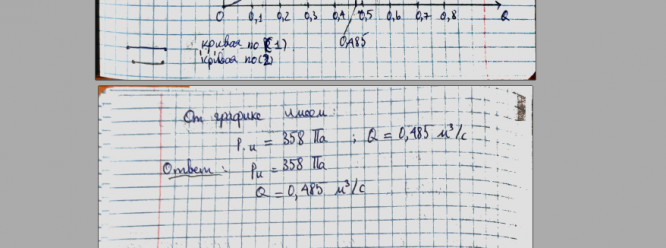 0 0,1 0,2 0,3 0,4 0,5 0,6 0,7 0,8 Q
0,485
кривая по (1)
кривая по (2)
От графике имеем:
Pи = 358 Па ; Q = 0,485 м³/с
Ответ: Pи = 358 Па
Q = 0,485 м³/с